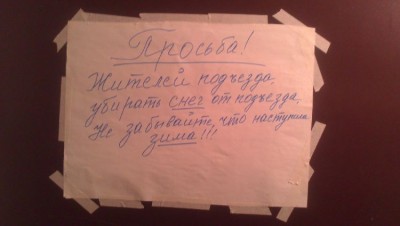 Просьба!
Жителей подъезда
убирать снег от подъезда,
Не забывайте, что наступила
зима!!!